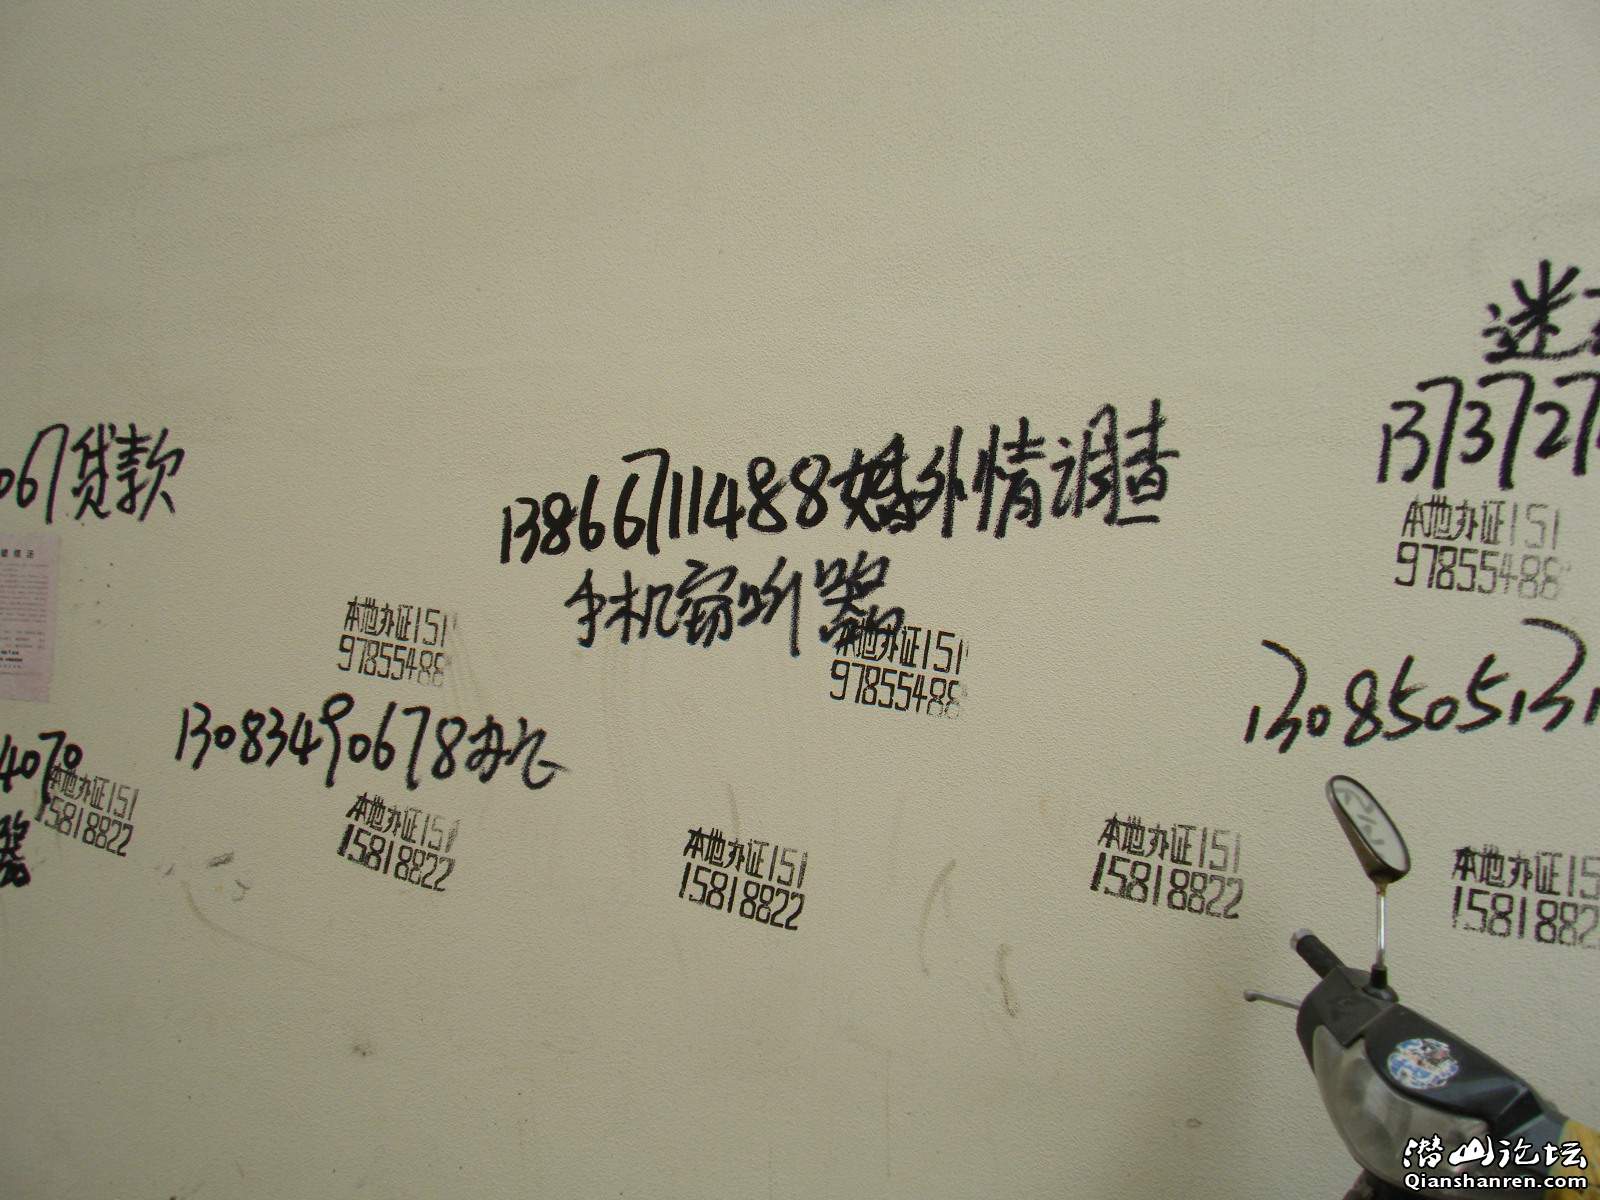 迷
137372
067贷款
13866711488婚外情调查
手机窃听器
本地办证151
97855488
本地办证151
97855488
本地办证151
97855488
13083490678办证
130850513
4070
器
本地办证151
15818822
本地办证151
15818822
本地办证151
15818822
本地办证151
15818822
本地办证15
1581882
潜山论坛
Qianshanren.com